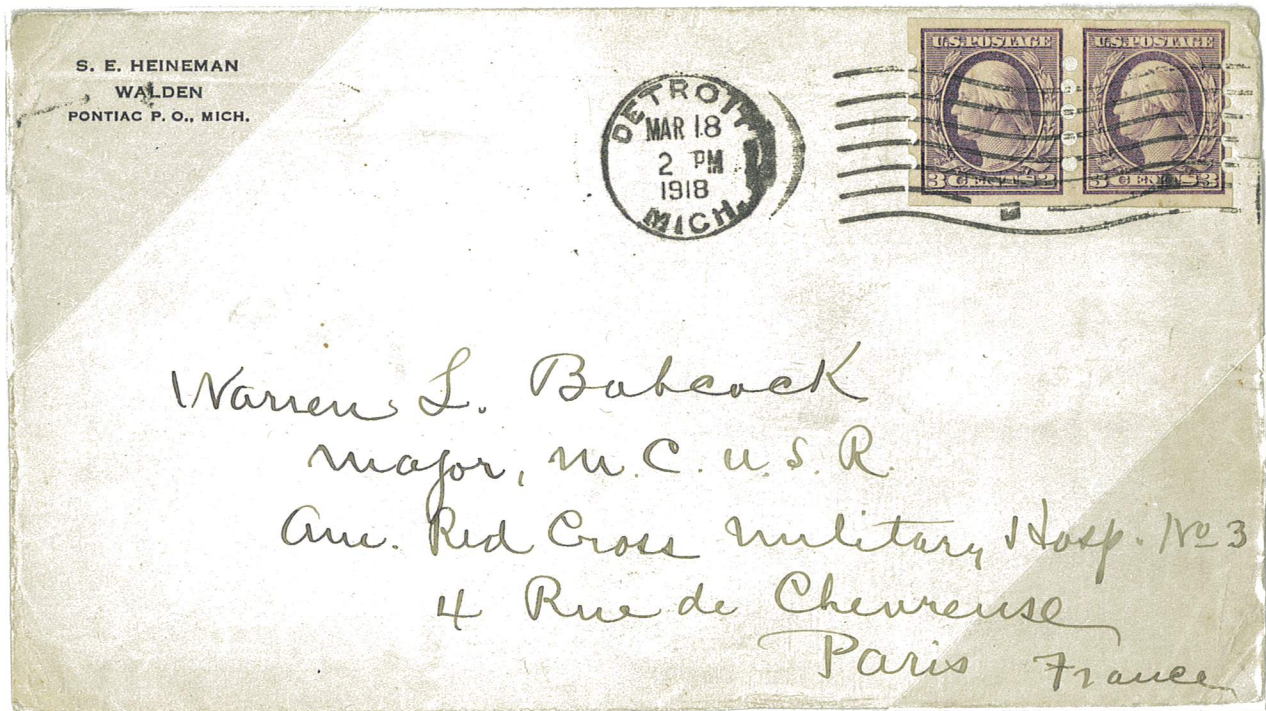 S. E. HEINEMAN
WALDEN
PONTIAC P. O., MICH.
DETROIT
MAR 18
2 PM
1918
MICH.
U.S. POSTAGE
3 CENTS 3
U.S. POSTAGE
3 CENTS 3
Warren L. Babcock
Major, M. C. U. S. R.
Am. Red Cross Military Hosp. No 3
4 Rue de Chevreuse
Paris France